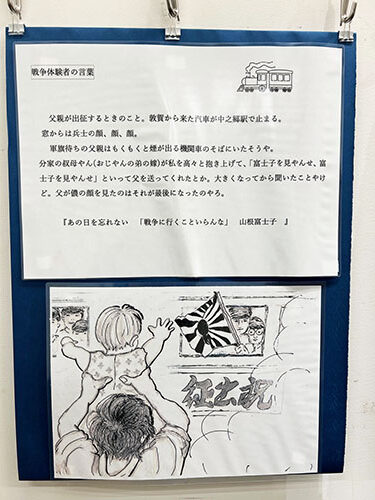 戦争体験者の言葉
父親が出征するときのこと。敦賀から来た汽車が中之郷駅で止まる。
窓からは兵士の顔、顔、顔。
軍旗待ちの父親はもくもくと煙が出る機関車のそばにいたそうや。
分家の叔母やん(おじやんの弟の嫁)が私を高々と抱き上げて、「富士子を見やんせ、富
士子を見やんせ」といって父を送ってくれたとか。大きくなってから聞いたことやけ
ど。父が儂の顔を見たのはそれが最後になったのやろ。
『あの日を忘れない 「戦争に行くこといらんな」 山根富士子 』
祝出征